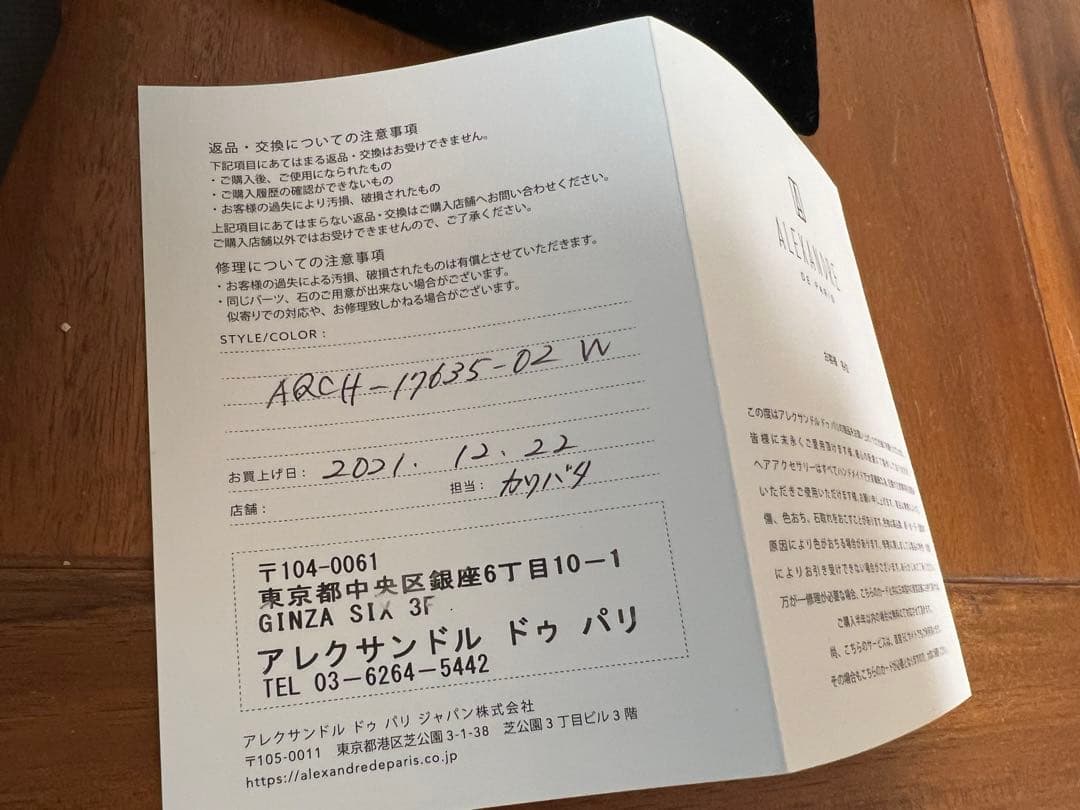 返品・交換についての注意事項
下記項目にあてはまる返品・交換はお受けできません。
・ご購入後、ご使用になられたもの
・ご購入履歴の確認ができないもの
・お客様の過失により汚損、破損されたもの
上記項目にあてはまらない返品・交換はご購入店舗へお問い合わせください。
ご購入店舗以外ではお受けできませんので、ご了承ください。
修理についての注意事項
・お客様の過失による汚損、破損されたものは有償とさせていただきます。
・同じパーツ、石のご用意が出来ない場合がございます。
似寄りでの対応や、お修理致しかねる場合がございます。
STYLE/COLOR :
AQCH-17635-02 W
お買上げ日: 2021. 12. 22
店舗: 担当: カリバタ
〒104-0061
東京都中央区銀座6丁目10-1
GINZA SIX 3F
アレクサンドル ドゥ パリ
TEL 03-6264-5442
アレクサンドル ドゥ パリ ジャパン株式会社
〒105-0011 東京都港区芝公園3-1-38 芝公園3丁目ビル3階
https://alexandredeparis.co.jp
ALEXANDRE
DE PARIS
お客様 各位
この度はアレクサンドル ドゥ パリの
皆様に末永くご愛用頂けます様、
ヘアアクセサリーはすべてハンドメイド
いただきご使用いただけます様、お願い申し上げます。
傷、色おち、石取れをおこすことがあります。
原因により色がおちる場合があります。
によりお引き受けできない場合がございます。
万が一修理が必要な場合、こちらのカードと
ご購入半年以内の場合は無料にて
尚、こちらのサービスは、
その場合もこちらのカードが必要となりますので、